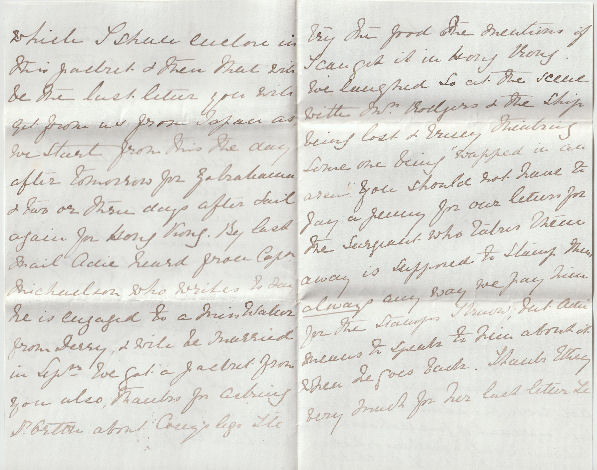 which I shall enclose in
this packet & then that will
be the last letter you will
get from us from Japan as
we start from this the day
after tomorrow for Yokohama
& two or three days after sail
again for Hong Kong. By last
mail Adie heard from Capn
Michaelson who writes to say
he is engaged to a Miss
from Derry, & will be married
in Sepr. We got a packet from
you also, Thanks for asking
Dr about legs He
try the food she mentions if
I can get it in Hong Kong.
We laughed so at the scene
with Mrs Rodgers & the ship
being lost & Trusy thinking
some one being "wapped in an
aren" You should not have to
pay a penny for our letters for
the sargeant who takes them
away is supposed to stamp them
always any way we pay him
for the stamps I know, but Adie
means to speak to him about it
when he goes back. Thank
very much for her last letter He